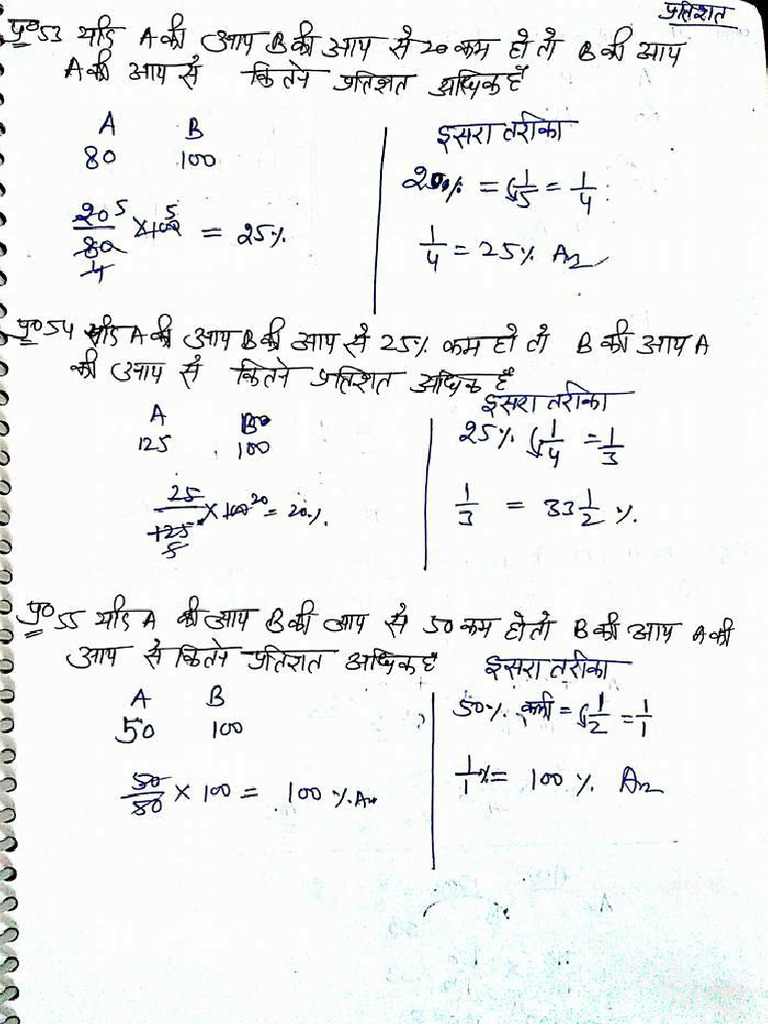 प्रतिशत
प्र० 53 यदि A की आय B की आय से 20 कम हो तो B की आय
A की आय से कितने प्रतिशत अधिक है
A B
80 100
20/80 × 100 = 25%
दूसरा तरीका
20% = 1/5 = 1/4
1/4 = 25% Ans
प्र० 54 यदि A की आय B की आय से 25% कम हो तो B की आय A
की आय से कितने प्रतिशत अधिक है
A B
125 100
25/125 × 100 = 20%
दूसरा तरीका
25% 1/4 = 1/3
1/3 = 33 1/2 %
प्र० 55 यदि A की आय B की आय से 50 कम हो तो B की आय A की
आय से कितने प्रतिशत अधिक है
A B
50 100
50/50 × 100 = 100 % Ans
दूसरा तरीका
50% कमी = 1/2 = 1/1
1/1 % = 100 % Ans